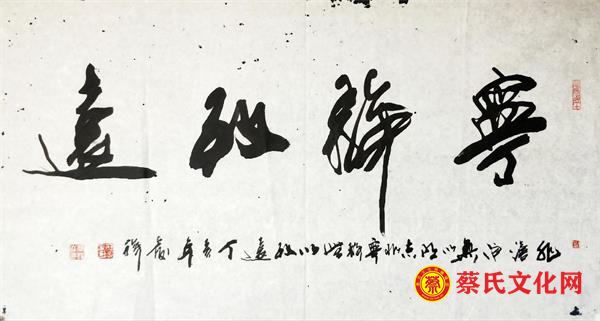 寧靜致遠
非澹泊無以明志非寧靜無以致遠丁亥年
蔡氏文化网